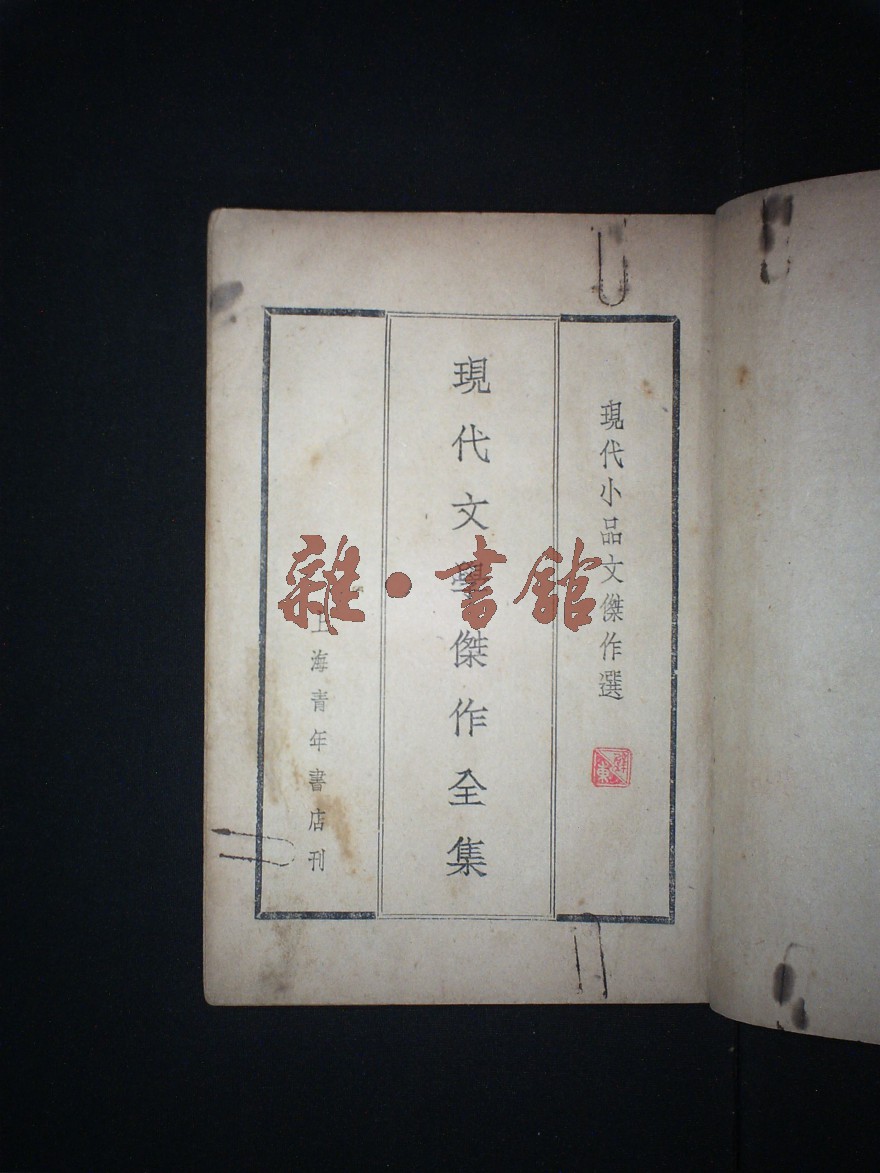 現代小品文傑作選
現代文學傑作全集
上海青年書店刊
雜·書館